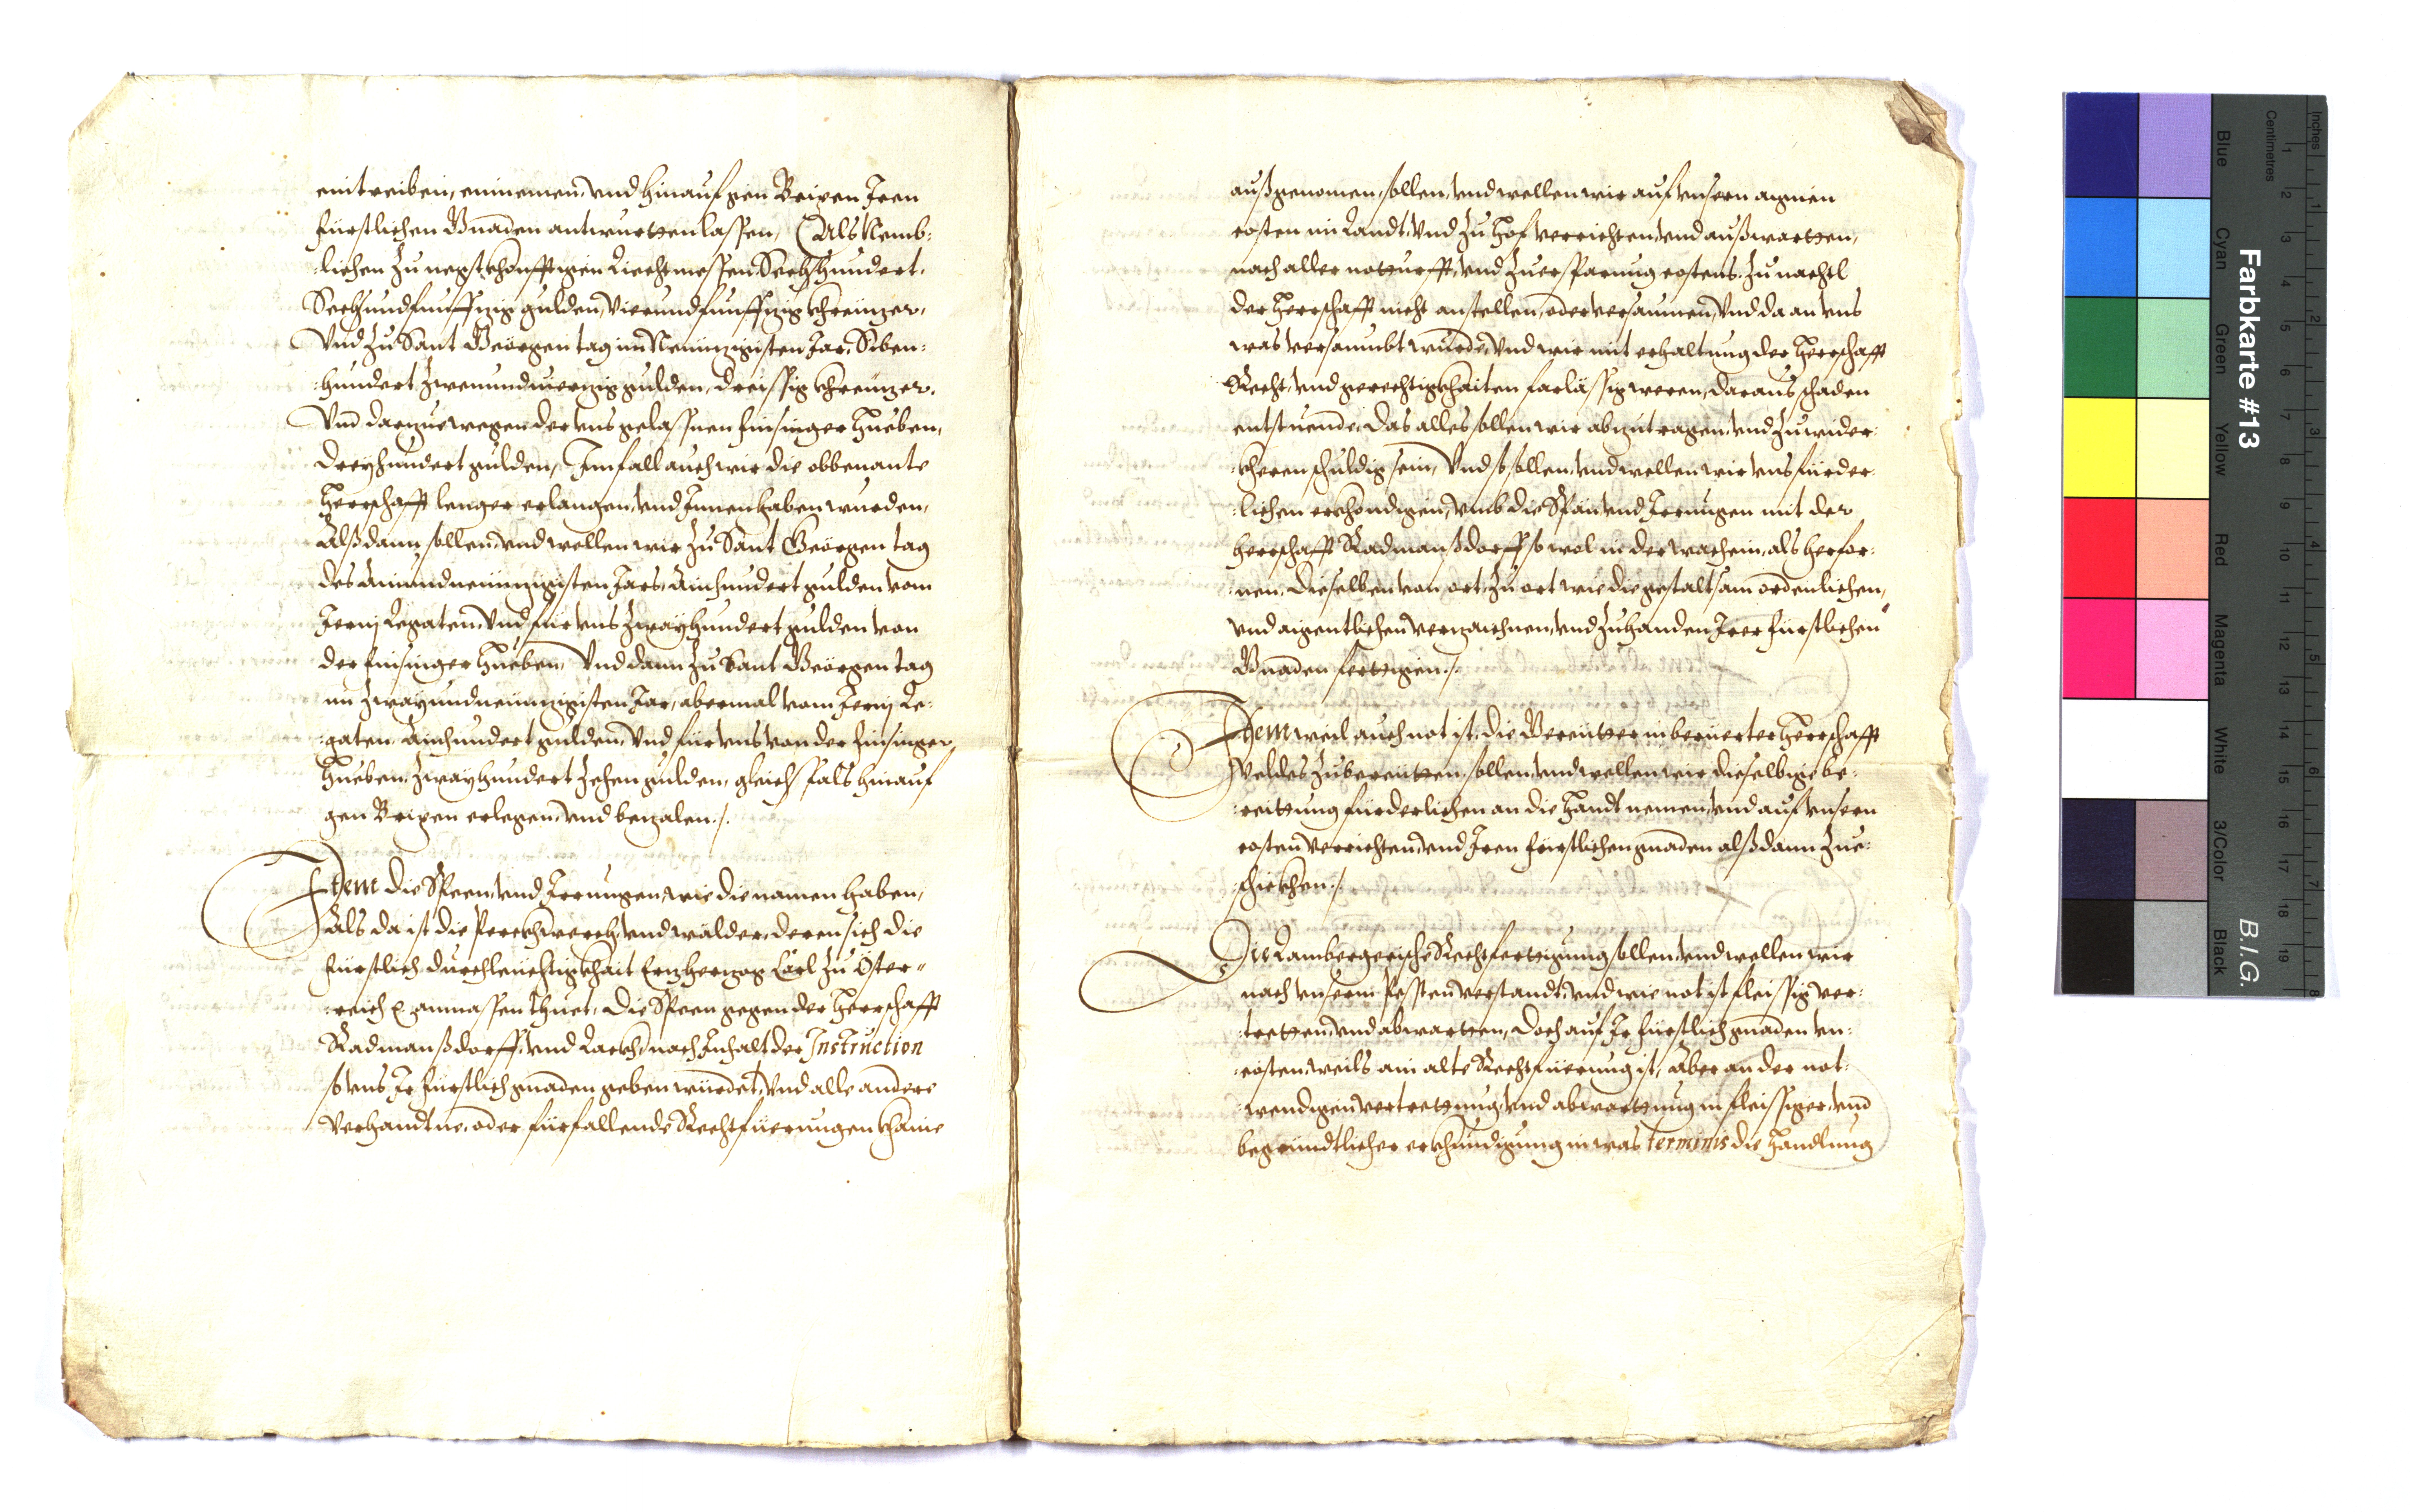 eintreiben, einnemen, vnd hinauf gen Brixen Jren
fürstlichen Gnaden antwurtten lassen, (Als Nemb:
:lichen zu negstkhonfftigen Liechtmessen Sechshundert,
Sechsundfunffzig gulden, Vierundfunffzig khreüzer,
Vnd zu Sant Geörgen tag im Neünzigisten Jar, Siben:
:hundert, zwenundvierzig gulden, dreissig khreüzer.
Vnd darzue wegen der vns gelassnen finsinger Hueben,
dreyhundert gulden, Im fall auch wir die obbenante
Herrschafft lenger erlangen, vnd Innenhaben wurden,
Alßdann sollen, vnd wellen wir zu Sant Geörgen tag
des Ainundneünzigisten Jars, Ainhundert gulden vom
Jerinj Legaten, vnd für vns zwayhundert gulden von
der finsinger Hueben, Vnd dann zu Sant Geörgen tag
im zwayundneünzigisten Jar, abermal vom Jerinj Le:
:gaten, Ainhundert gulden, Vnd für vns von der finsinger
Hueben, zwayhundert zehen gulden, gleichsfals hinauf
gen Brixen erlegen, vnd bezalen ./.
Item die Speen, vnd Jrrungen, wie die namen haben,
Als da ist die Perckhwerch, vnd wälder, deren sich die
fürstlich durchleüchtigkhait Erzherzog Carl zu Öster=
:reich ꝛc. anmassen thuet, die Speen gegen der Herrschafft
Radmanßdorff, vnd Lackh, nach Inhalt der Instruction
so vns Jr fürstlich gnaden geben würdet, Vnd alle andere
verhandtne, oder fürfallende Rechtfüerungen khaine
außgenomen, sollen, vnd wellen wir auf vnsern aignen
costen im Landt, vnd zu Hof verrichten, vnd außwarten,
nach aller notturfft, vnd zuersparung costens zu nachtl
der Herrschafft nicht anstellen, oder versaumen, Vnd da an vns
was versaumbt wurde, Vnd wir mit erhaltung der Herrschafft
Recht, vnd gerechtigkhaiten farlässig weren, daraus schaden
entstuende, das alles sollen wir abzutragen, vnd zuwider
:kheren schuldig sein, Vnd so sollen, vnd wellen wir vns fürder
:lichen erkhondigen, vmb die Spän, vnd Jrrungen mit der
herrschafft Radmanßdorff so wol in der wachein, als herfor:
:nen, dieselben von ort, zu ort wie die gestaltsam ordenlichen,
vnd aigentlichen verzaichnen, vnd zuhanden Jrer fürstlichen
Gnaden fertigen ./.
Item weil auch not ist, die Gereütter in berüerter Herrschafft
Veldes zubereitten, sollen, vnd wellen wir dieselbige be:
:reittung fürderlichen an die Handt nemen, vnd auf vnsern
costen verrichten, vnd Jren fürstlichen gnaden alßdann zue:
:schickhen ./.
Die Lambergerische Rechtfertigung sollen, vnd wellen wir
nach vnserm pessten verstandt, vnd wie not ist fleissig ver:
:tretten, vnd abwarten, doch auf Jr fürstlich gnaden vn:
:costen, weils ain alte Rechtfüerung ist, Aber an der not:
:wendigen vertrettung, vnd abwarttung in fleissiger, vnd
begründtlicher erkhundigung in was terminis die Handlung